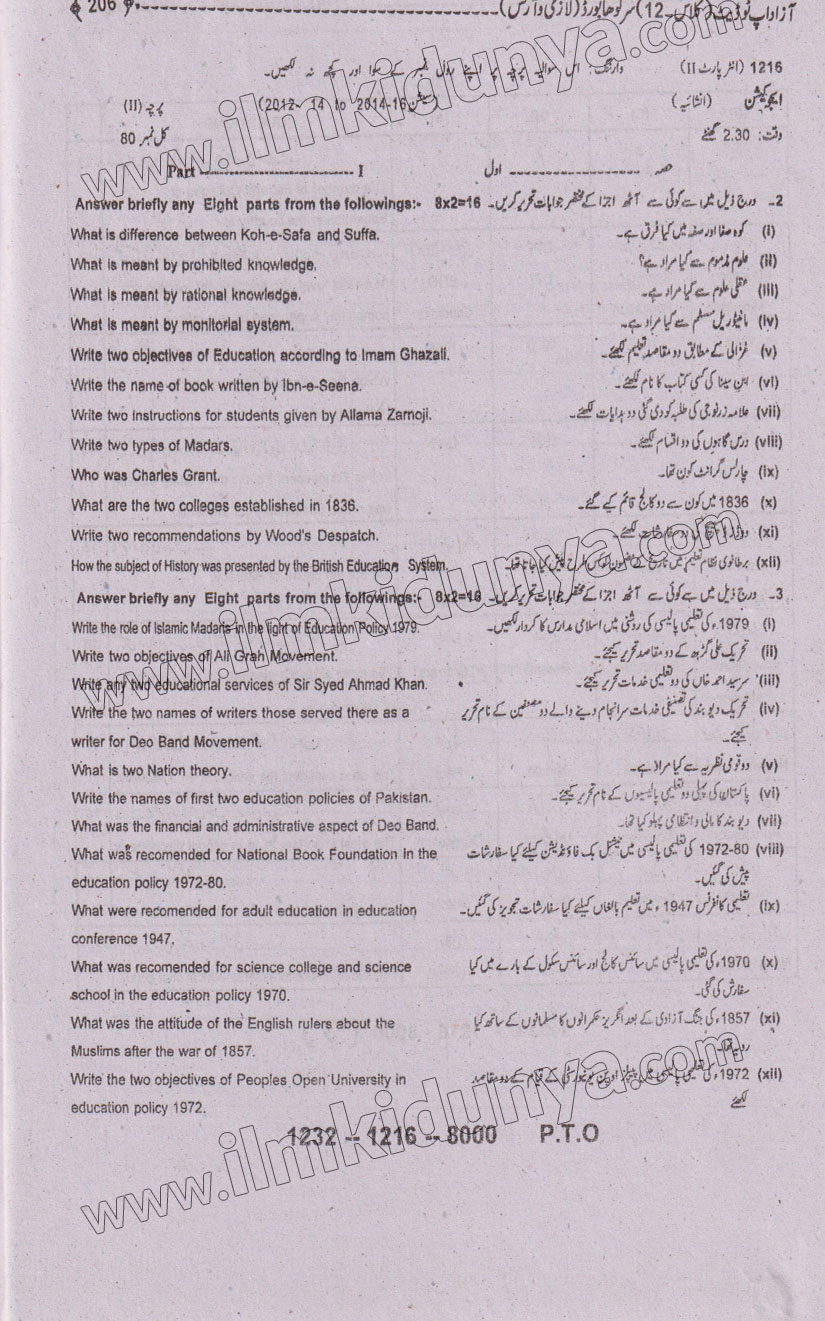 آزاد اپ ٹو ڈیٹ (کلاس۔12) سرگودھا بورڈ (لازمی و آرٹس) ﴿ 206 ﴾
1216 (انٹر پارٹ II) وارننگ: اس سوالیہ پرچہ پر اپنے رول نمبر کے سوا اور کچھ نہ لکھیں۔
ایجوکیشن (انشائیہ) (سیشن 2012-14 to 2014-16) پرچہ (II)
وقت: 2.30 گھنٹے کل نمبر 80
حصہ ------------------ اول Part ------------------ I
Answer briefly any Eight parts from the followings:- 8x2=16 2۔ درج ذیل میں سے کوئی سے آٹھ اجزا کے مختصر جوابات تحریر کریں۔
What is difference between Koh-e-Safa and Suffa. (i) کوہ صفا اور صفہ میں کیا فرق ہے۔
What is meant by prohibited knowledge. (ii) علوم مذموم سے کیا مراد ہے؟
What is meant by rational knowledge. (iii) عقلی علوم سے کیا مراد ہے۔
What is meant by monitorial system. (iv) مانیٹوریل سسٹم سے کیا مراد ہے۔
Write two objectives of Education according to Imam Ghazali. (v) غزالی کے مطابق دو مقاصد تعلیم لکھئے۔
Write the name of book written by Ibn-e-Seena. (vi) ابن سینا کی کسی کتاب کا نام لکھئے۔
Write two instructions for students given by Allama Zarnoji. (vii) علامہ زرنوجی کی طلبہ کو دی گئی دو ہدایات لکھئے۔
Write two types of Madars. (viii) درس گاہوں کی دو اقسام لکھئے۔
Who was Charles Grant. (ix) چارلس گرانٹ کون تھا۔
What are the two colleges established in 1836. (x) 1836 میں کون سے دو کالج قائم کیے گئے۔
Write two recommendations by Wood's Despatch. (xi) لکھئے۔
How the subject of History was presented by the British Education System. (xii) برطانوی نظام تعلیم میں تاریخ کے
Answer briefly any Eight parts from the followings:- 8x2=16 3۔ درج ذیل میں سے کوئی سے آٹھ اجزا کے مختصر جوابات تحریر کریں۔
Write the role of Islamic Madaris in the light of Education Policy 1979. (i) 1979ء کی تعلیمی پالیسی کی روشنی میں اسلامی مدارس کا کردار لکھیں۔
Write two objectives of Ali Grah Movement. (ii) تحریک علی گڑھ کے دو مقاصد تحریر کیجئے۔
Write any two educational services of Sir Syed Ahmad Khan. (iii) سرسید احمد خاں کی دو تعلیمی خدمات تحریر کیجئے۔
Write the two names of writers those served there as a (iv) تحریک دیو بند کی تصنیفی خدمات سرانجام دینے والے دو مصنفین کے نام تحریر
writer for Deo Band Movement. کیجئے۔
What is two Nation theory. (v) دو قومی نظریہ سے کیا مراد ہے۔
Write the names of first two education policies of Pakistan. (vi) پاکستان کی پہلی دو تعلیمی پالیسیوں کے نام تحریر کیجئے۔
What was the financial and administrative aspect of Deo Band. (vii) دیو بند کا مالی و انتظامی پہلو کیا تھا۔
What was recomended for National Book Foundation in the (viii) 1972-80 کی تعلیمی پالیسی میں نیشنل بک فاؤنڈیشن کیلئے کیا سفارشات
education policy 1972-80. پیش کی گئیں۔
What were recomended for adult education in education (ix) تعلیمی کانفرنس 1947ء میں تعلیم بالغاں کیلئے کیا سفارشات تجویز کی گئیں۔
conference 1947.
What was recomended for science college and science (x) 1970ء کی تعلیمی پالیسی میں سائنس کالج اور سائنس سکول کے بارے میں کیا
school in the education policy 1970. سفارش کی گئی۔
What was the attitude of the English rulers about the (xi) 1857ء کی جنگ آزادی کے بعد انگریز حکمرانوں کا مسلمانوں کے ساتھ کیا
Muslims after the war of 1857. رویہ تھا۔
Write the two objectives of Peoples Open University in (xii) 1972ء کی تعلیمی پالیسی میں پیپلز اوپن یونیورسٹی کے قیام کے دو مقاصد
education policy 1972. لکھئے
1232 -- 1216 -- 8000 P.T.O
www.ilmkidunya.com
www.ilmkidunya.com
www.ilmkidunya.com